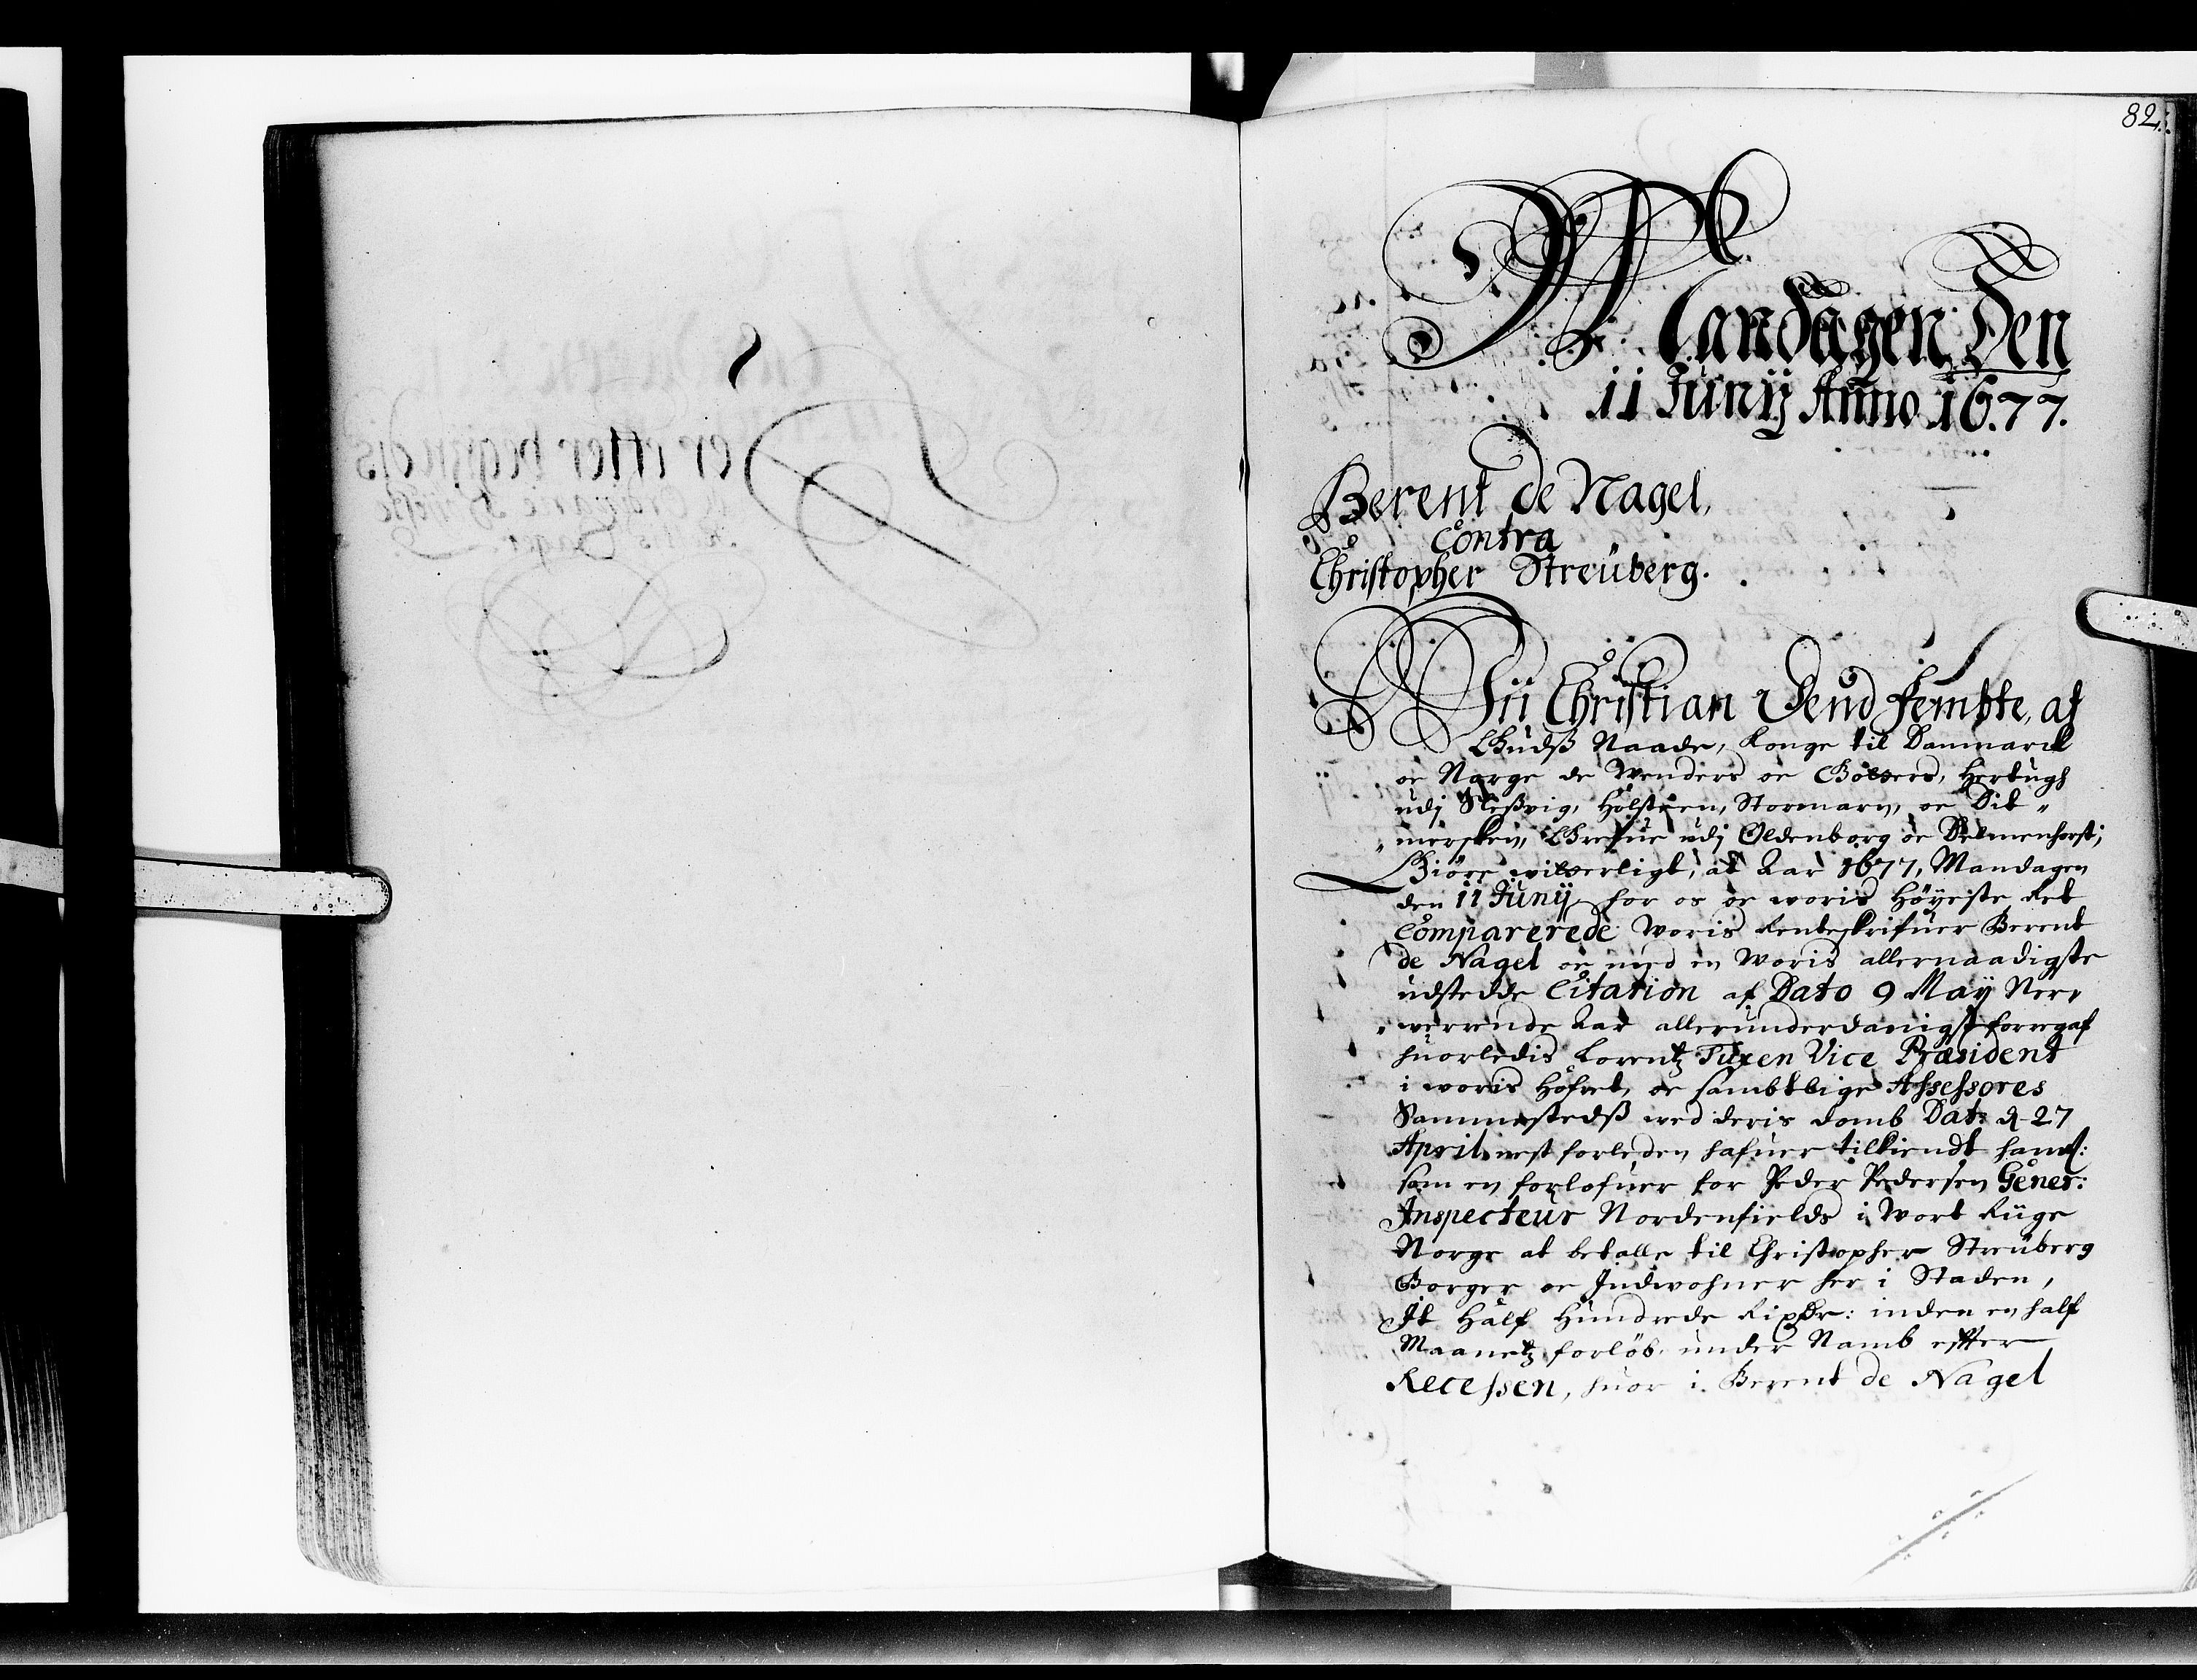 82.
Mandagen Den
11 Junij Anno 1677.
Berent de Nagel,
Contra
Christopher Streüberg.
Wii Christian Dend Fembte, af
Gudß Naade, Konge til Danmarck
oc Norge de Wenders oc Gothers, Hertugh
udj Sleßvig, Holsteen, Stormarn, oc Dit„
„mersken, Grefue udj Oldenborg oc Delmenhorst;
Giöre witterligt, at Aar 1677, Mandagen
den 11 Junij for os oc woris Höyeste Ret
Comparerede Woris Renteskrifuer Berent
de Nagel oc med en Woris allernaadigste
udstedde Citation af Dato 9 Maij Ner„
„werende Aar allerunderdanigst foregaf
huorledis Lorentz Tuxen Vice Præsident
i woris Hofret, oc sambtlige Assessores
Sammestedß wed deris domb Dat: d. 27
April nest forleden hafuer tilkiendt ham
som en forlofuer for Peder Pedersen Gener:
Inspecteur Nordenfields i Wort Rüge
Norge at betalle til Christopher Streüberg
Borger oc Indwohner her i Staden,
It Half Hundrede Rixdr: inden en half
Maanetz forlöb under Namb effter
Recessen, huor i Berent de Nagel